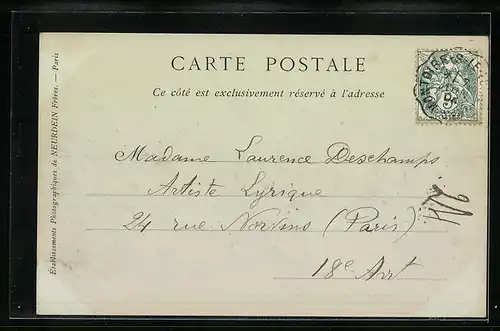 CARTE POSTALE
Ce côté est exclusivement réservé à l'adresse
Madame Laurence Deschamps
Artiste Lyrique
24 rue Norvins (Paris)
18e Arrt
Établissements Photographiques de NEURDEIN Frères. — Paris